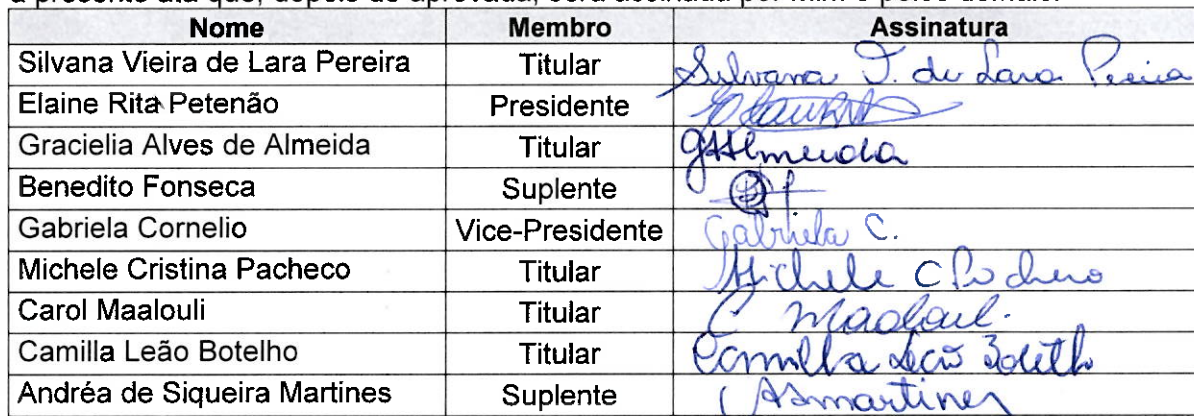 a presente ata que, depois de aprovada, será assinada por mim e pelos demais.
Nome Membro Assinatura
Silvana Vieira de Lara Pereira Titular Silvana V. de Lara Pereira
Elaine Rita Petenão Presidente
Gracielia Alves de Almeida Titular GAAlmeida
Benedito Fonseca Suplente
Gabriela Cornelio Vice-Presidente Gabriela C.
Michele Cristina Pacheco Titular Michele C Pacheco
Carol Maalouli Titular C Maalouli
Camilla Leão Botelho Titular Camilla Leão Botelho
Andréa de Siqueira Martines Suplente ASmartines